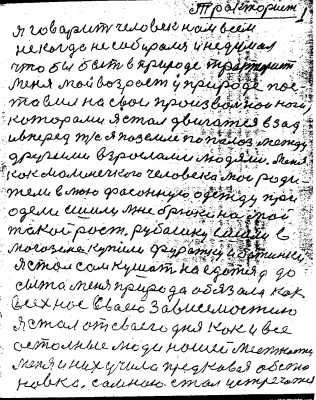 тракторист 1
я говорит человек нам всем
некогда не собирался и не думал
что был быть в природе тракторист
меня мой возрост у природе пос
тавил на свои произвольной ноги
которами я стал двигатся взад
и вперед т/с я по земле попалоз между
другими взрослами людями. меня
как маленичкого человека мои роди
тели в мою фасонную одежду при
одели сшили мне брюки на мой
такой рост. рубашку сшили в
могозине купили фуражку и батинки
я стал сам кушат наедатся до
сыта меня природа обязала как
всех нас сваею зависемостию
я стал от сваего дня как и все
остолные люди нашей местности
меня и них учила предковая обста
новка. самною стал истречатся